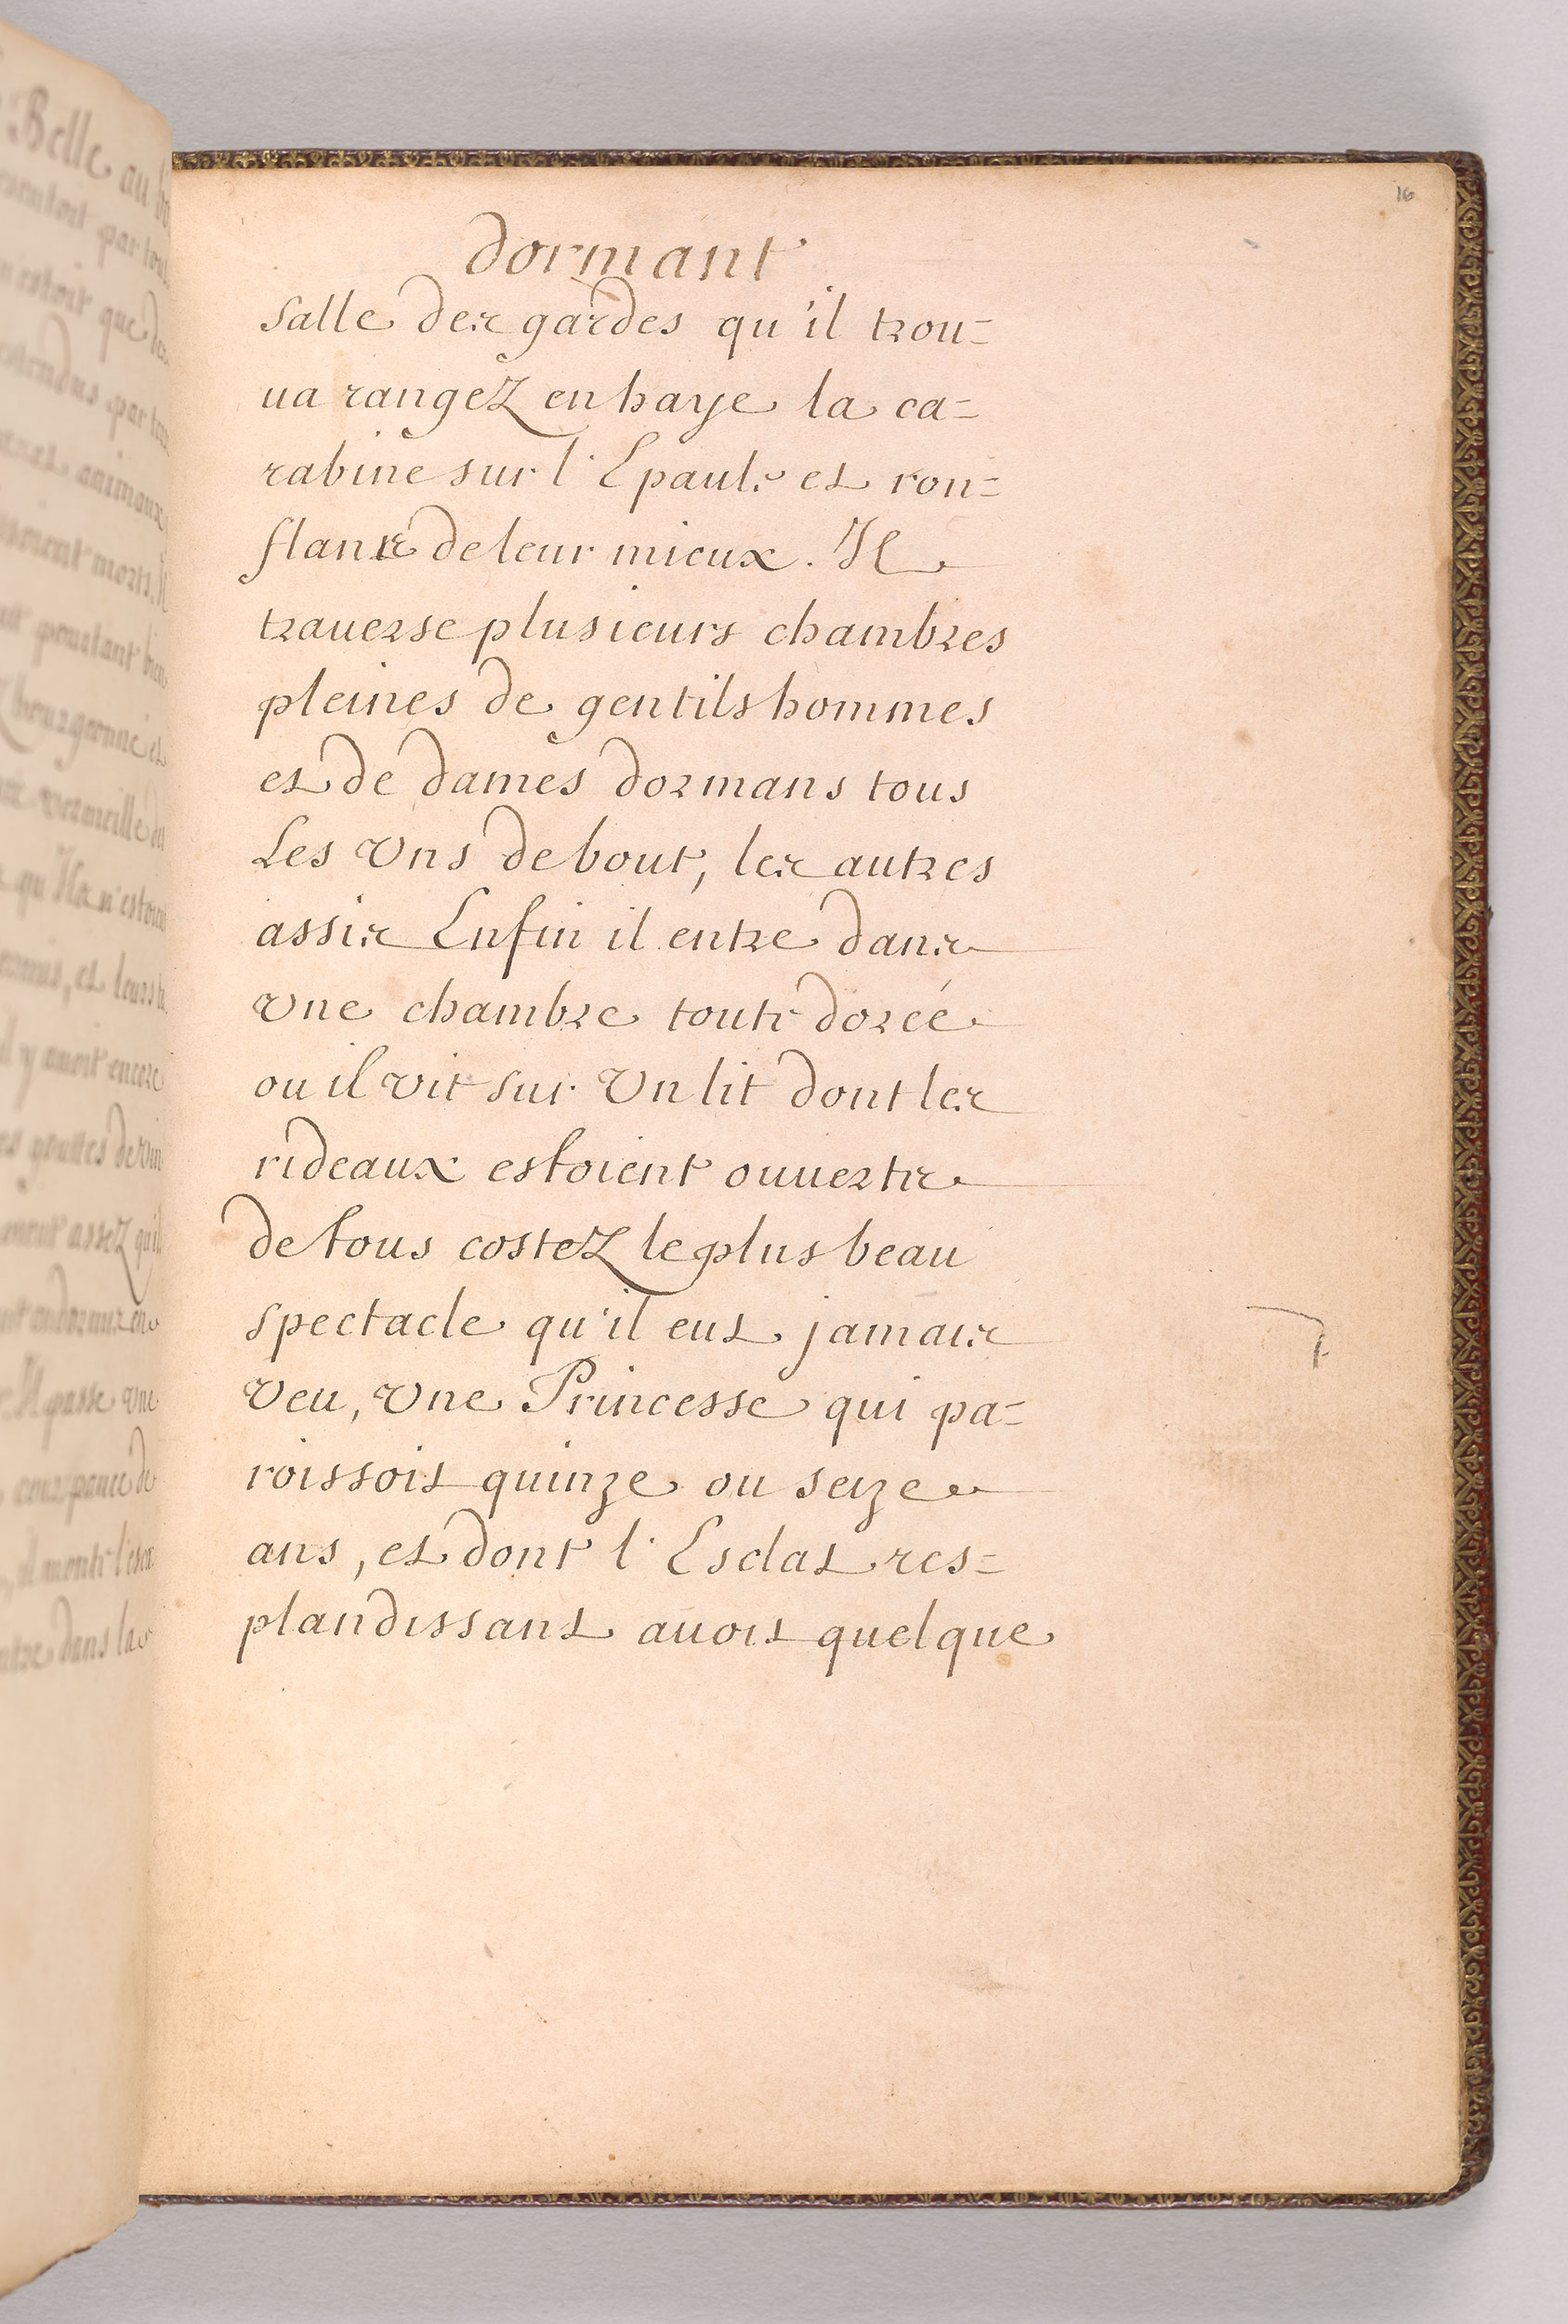 Belle au
par tout
estoit que
par
animaux
morts. Il
pourtant bien
bourgeonné et
vermeille
qu'Ils n'estoient
et leurs
il y auoit encore
gouttes de vin
assez qu'il
endormiz en
Il passe vne
de
il monte l'esca
dans la
16
dormant
Salle des gardes qu'il trou=
ua rangez en haye la ca=
rabine sur l'Epaule et ron=
flants de leur mieux. Il
trauerse plusieurs chambres
pleines de gentilshommes
et de dames dormans tous
Les Vns debout, les autres
assis Enfin il entre dans
vne chambre toute dorée
ou il vit sur Vn lit dont les
rideaux estoient ouuerts
de tous costez le plus beau
spectacle qu'il eut jamais
Veu, vne Princesse qui pa=
roissoit quinze ou seize
ans, et dont l'Esclat res=
plandissant auoit quelque